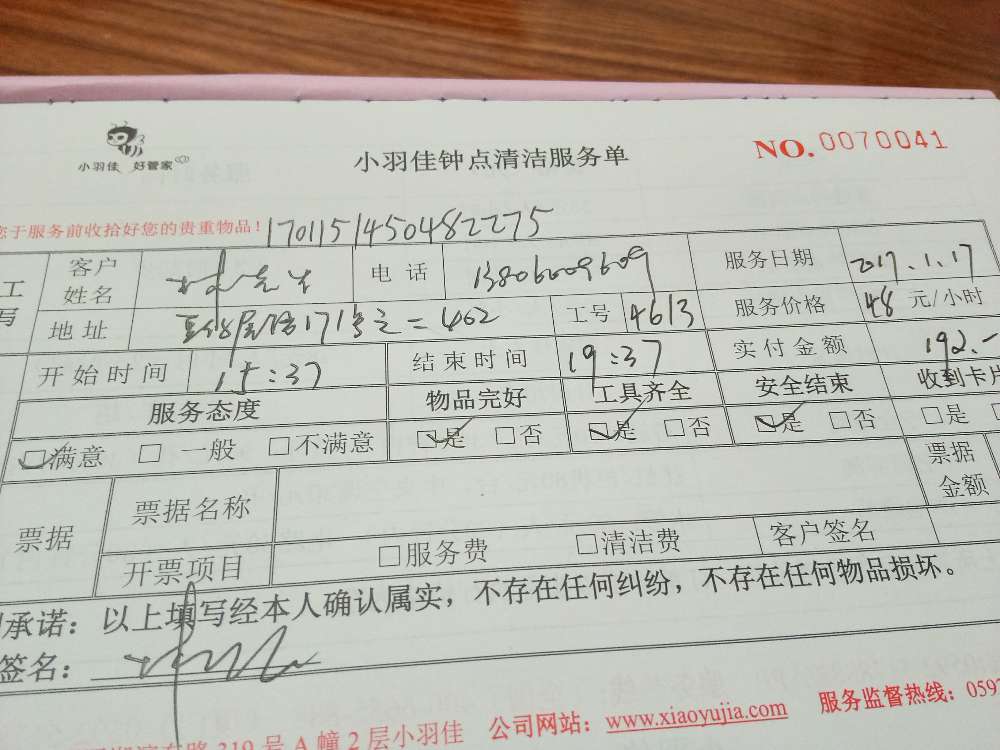 小羽佳 好管家
小羽佳钟点清洁服务单
NO. 0070041
您于服务前收拾好您的贵重物品! 170115145048 2275
工 客户姓名 林先生 电 话 13806009609 服务日期 2017.1.17
写 地 址 171号之二402 工号 4613 服务价格 48 元/小时
开始时间 15:37 结束时间 19:37 实付金额 192.-
服务态度 物品完好 工具齐全 安全结束 收到卡片
☑满意 □ 一般 □不满意 ☑是 □否 ☑是 □否 ☑是 □否 □是
票据 票据名称 票据金额
开票项目 □服务费 □清洁费 客户签名
承诺:以上填写经本人确认属实,不存在任何纠纷,不存在任何物品损坏。
签名:
路 319 号 A 幢 2 层小羽佳 公司网站:www.xiaoyujia.com 服务监督热线:0592